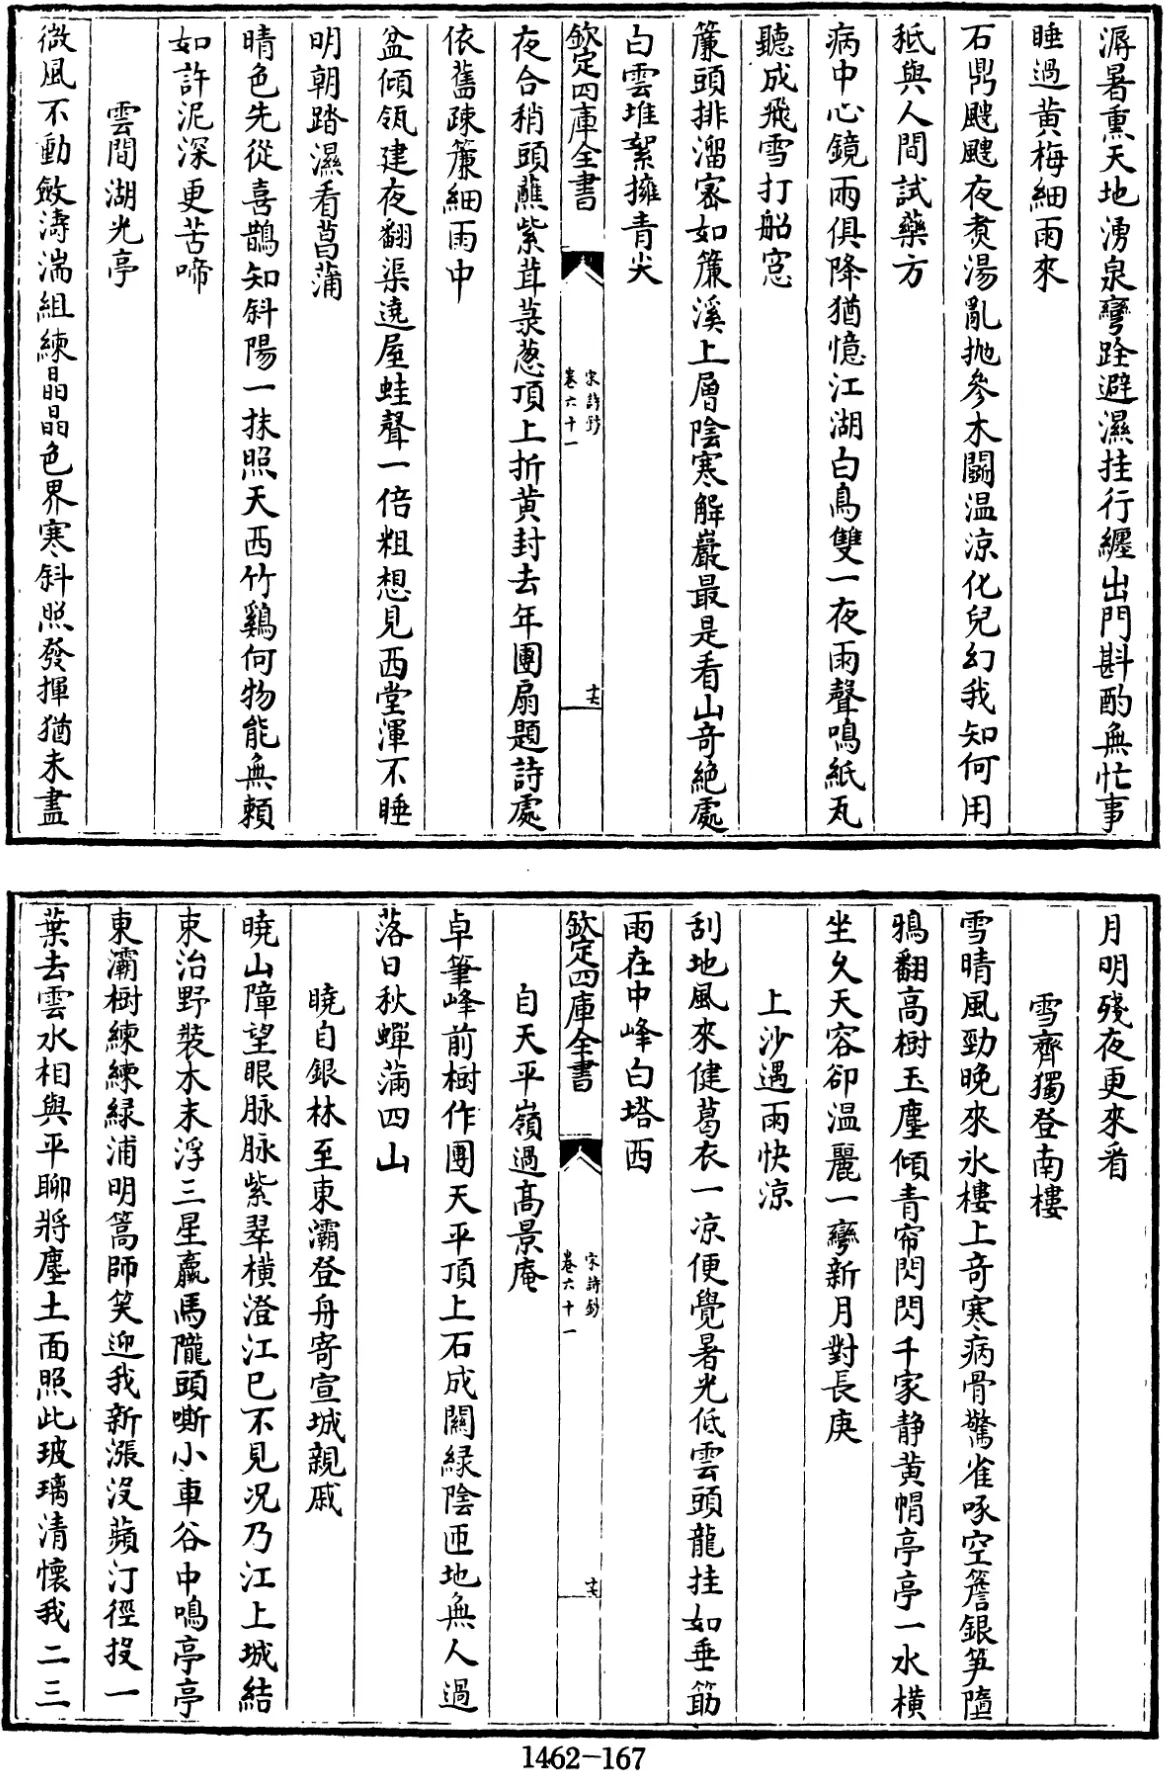 溽暑熏天地湧泉彎跧避濕挂行纒出門斟酌無忙事
睡過黄梅細雨來
石鼎颼飀夜煑湯亂抛參朮鬭温凉化兒幻我知何用
秪與人間試藥方
病中心鏡兩俱降猶憶江湖白鳥雙一夜雨聲鳴紙瓦
聽成飛雪打船窓
簷頭排溜宻如簾溪上層陰寒解嚴最是看山奇絶處
白雲堆絮擁青尖
欽定四庫全書
宋詩鈔
卷六十一
十六
夜合稍頭蘸紫茸菉葱頂上折黄封去年團扇題詩處
依舊疎簾細雨中
盆傾瓴建夜翻渠遶屋蛙聲一倍粗想見西堂渾不睡
明朝踏濕看菖蒲
晴色先從喜鵲知斜陽一抹照天西竹鷄何物能無賴
如許泥深更苦啼
雲間湖光亭
微風不動斂濤湍組練晶晶色界寒斜照發揮猶未盡
月明殘夜更來看
雪齊獨登南樓
雪晴風勁晚來氷樓上奇寒病骨驚雀啄空簷銀笋墮
鴉翻高樹玉塵傾青帘閃閃千家静黄帽亭亭一水横
坐久天容卻温麗一彎新月對長庚
上沙遇雨快凉
刮地風來健葛衣一凉便覺暑光低雲頭龍挂如垂筯
雨在中峰白塔西
欽定四庫全書
宋詩鈔
卷六十一
十六
自天平嶺過髙景庵
卓筆峰前樹作團天平頂上石成闗緑陰匝地無人過
落日秋蟬滿四山
曉自銀林至東灞登舟寄宣城親戚
曉山障望眼脉脉紫翠横澄江已不見况乃江上城結
束治野裝木末浮三星羸馬隴頭嘶小車谷中鳴亭亭
東灞樹練練緑浦明篙師笑迎我新漲没蘋汀徑投一
葉去雲水相與平聊將塵土面照此玻璃清懷我二三
1462-167